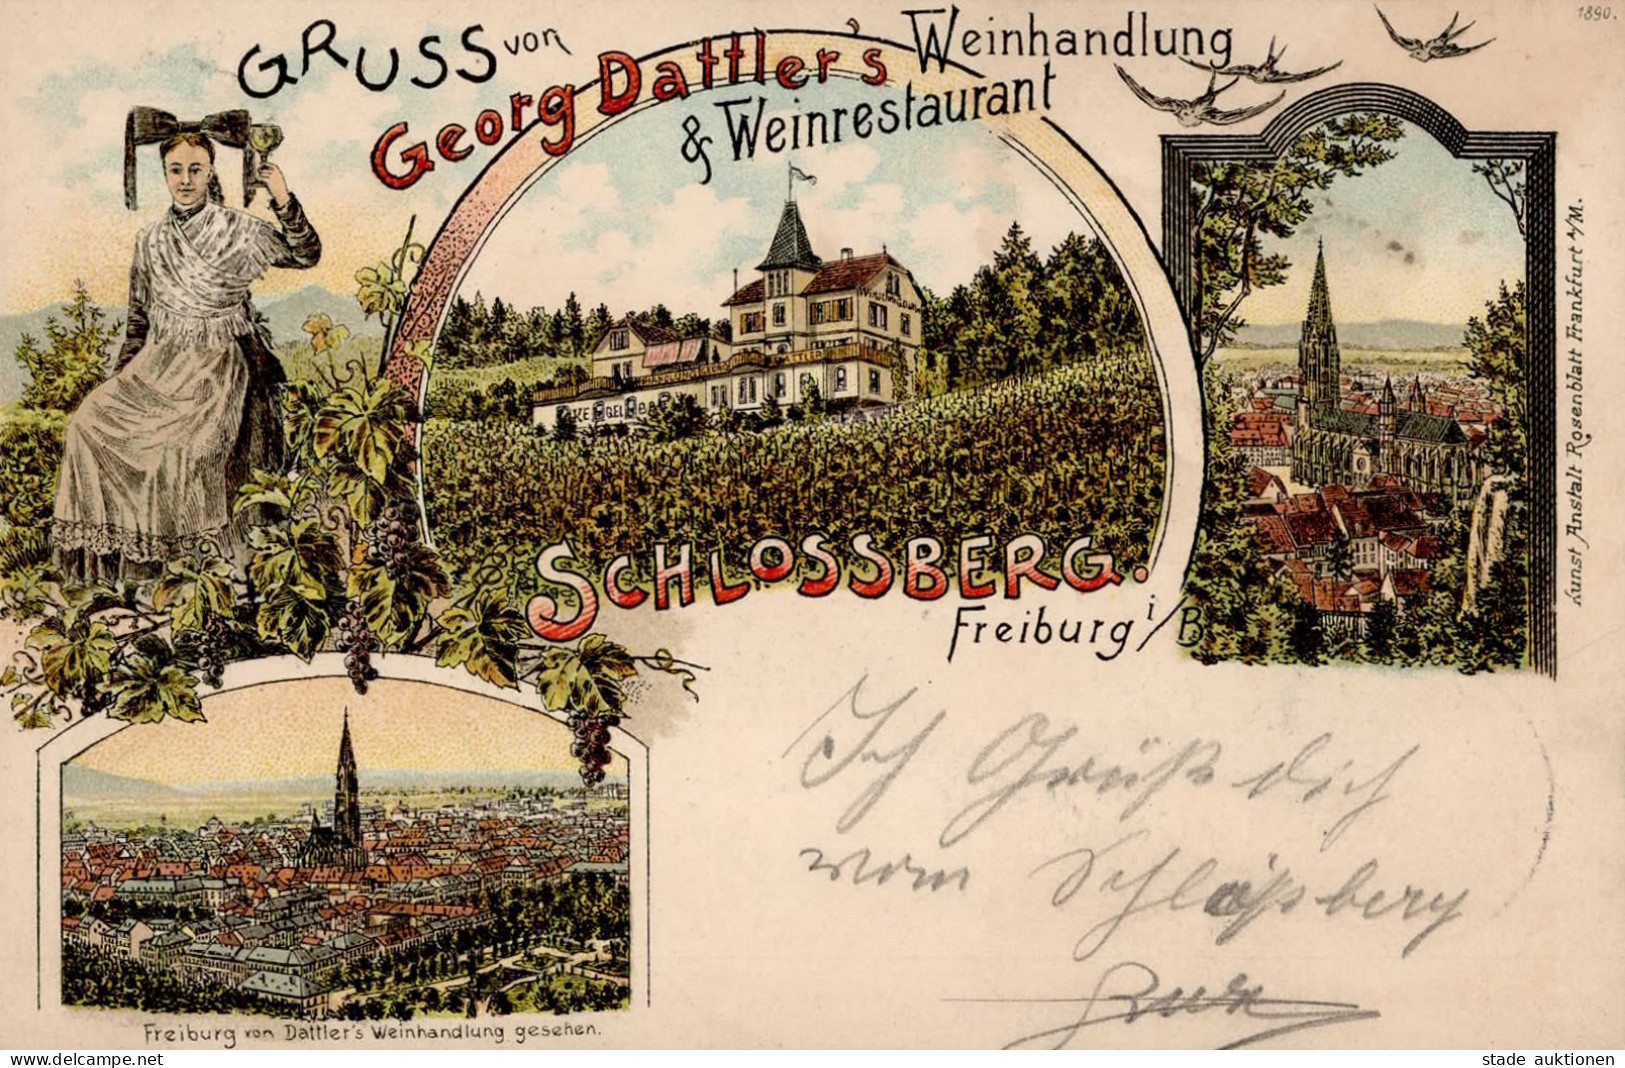 1890.
GRUSS von
Georg Dattler's Weinhandlung
& Weinrestaurant
KEGEL
SCHLOSSBERG.
Freiburg i/B
Kunst Anstalt Rosenblatt Frankfurt a/M.
Ich Grüße dich
vom Schloßberg
Freiburg von Dattler's Weinhandlung gesehen.
stade auktionen